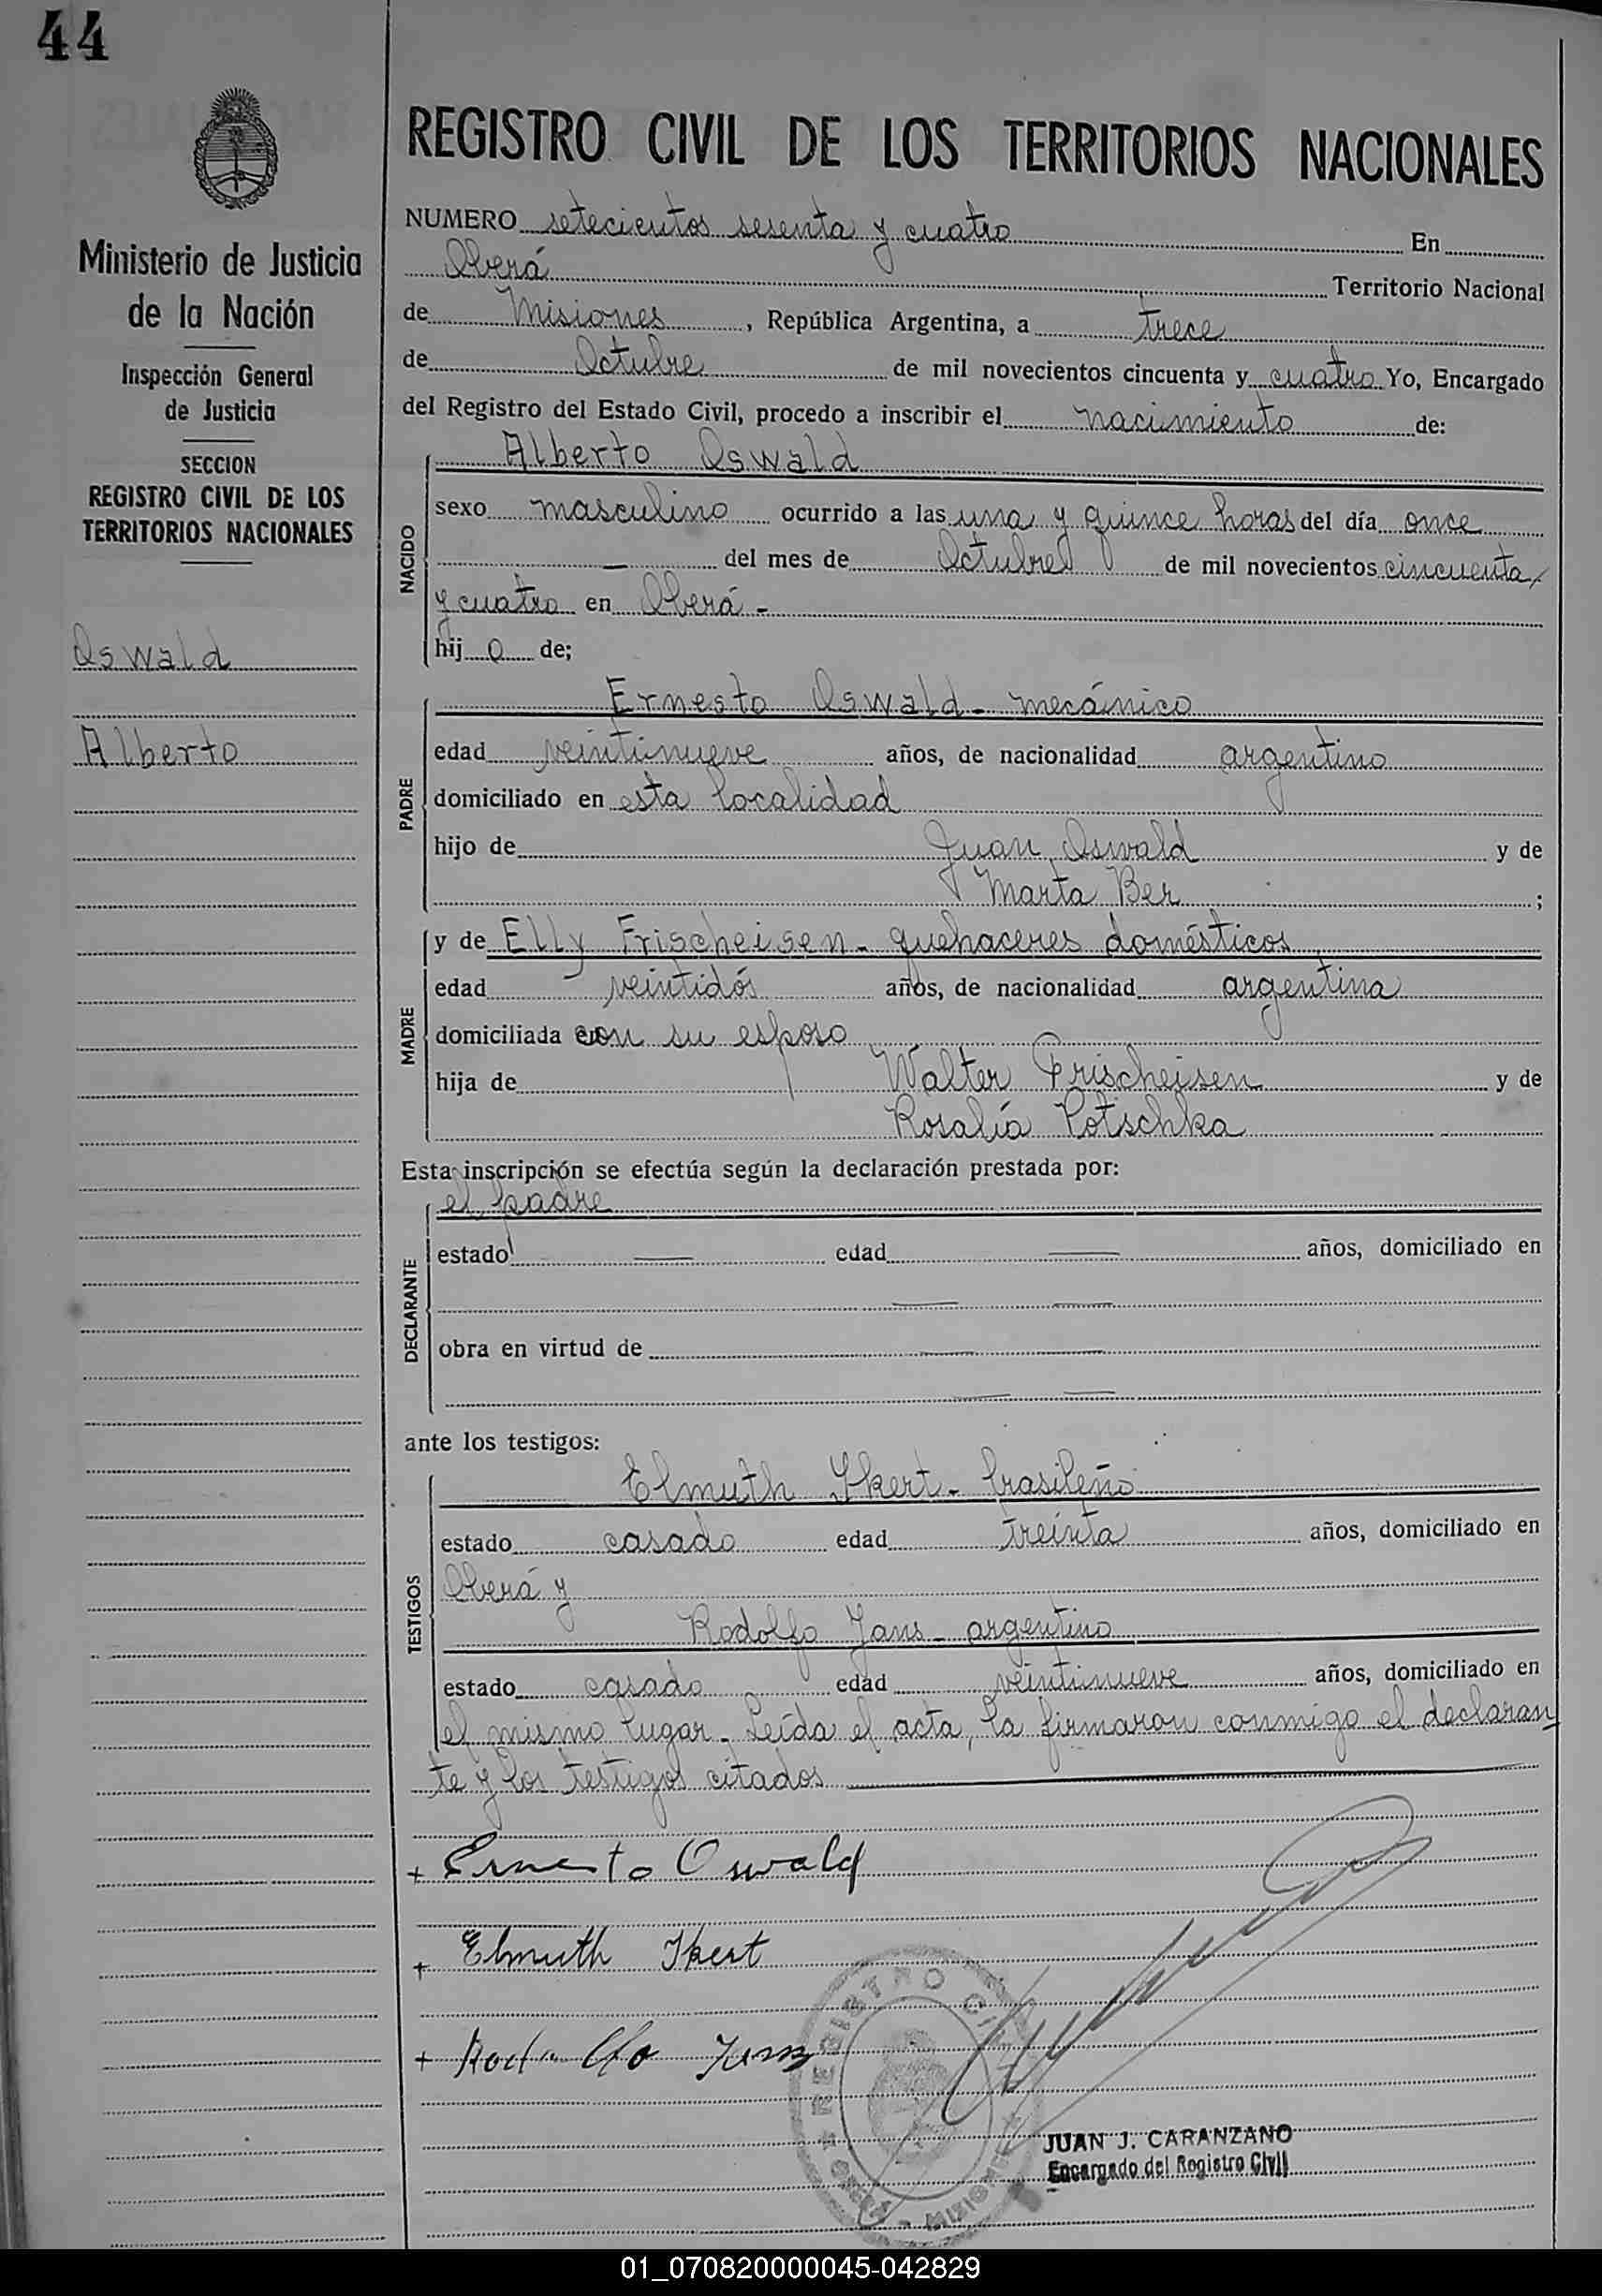 44
Ministerio de Justicia
de la Nación
Inspección General
de Justicia
SECCION
REGISTRO CIVIL DE LOS
TERRITORIOS NACIONALES
Oswald
Alberto
REGISTRO CIVIL DE LOS TERRITORIOS NACIONALES
NUMERO setecientos sesenta y cuatro En
Oberá Territorio Nacional
de Misiones, República Argentina, a trece
de Octubre de mil novecientos cincuenta y cuatro Yo, Encargado
del Registro del Estado Civil, procedo a inscribir el nacimiento de:
Alberto Oswald
NACIDO
sexo masculino ocurrido a las una y quince horas del día once
— del mes de Octubre de mil novecientos cincuenta
y cuatro en Oberá -
hij o de;
Ernesto Oswald - mecánico
PADRE
edad veintinueve años, de nacionalidad argentino
domiciliado en esta localidad
hijo de Juan Oswald y de
Marta Ber ;
y de Elly Frischeisen - quehaceres domésticos
MADRE
edad veintidós años, de nacionalidad argentina
domiciliada con su esposo
hija de Walter Frischeisen y de
Rosalía Potschka
Esta inscripción se efectúa según la declaración prestada por:
el padre
DECLARANTE
estado — edad — años, domiciliado en
— —
obra en virtud de — —
— —
ante los testigos:
Elmuth Ikert - brasileño
TESTIGOS
estado casado edad treinta años, domiciliado en
Oberá y
Rodolfo Jans - argentino
estado casado edad veintinueve años, domiciliado en
el mismo lugar. Leída el acta, la firmaron conmigo el declaran
te y los testigos citados
+ Ernesto Oswald
+ Elmuth Ikert
+ Rodolfo Jans
REGISTRO CIVIL
OBERA - MISIONES
JUAN J. CARANZANO
Encargado del Registro Civil
01_070820000045-042829